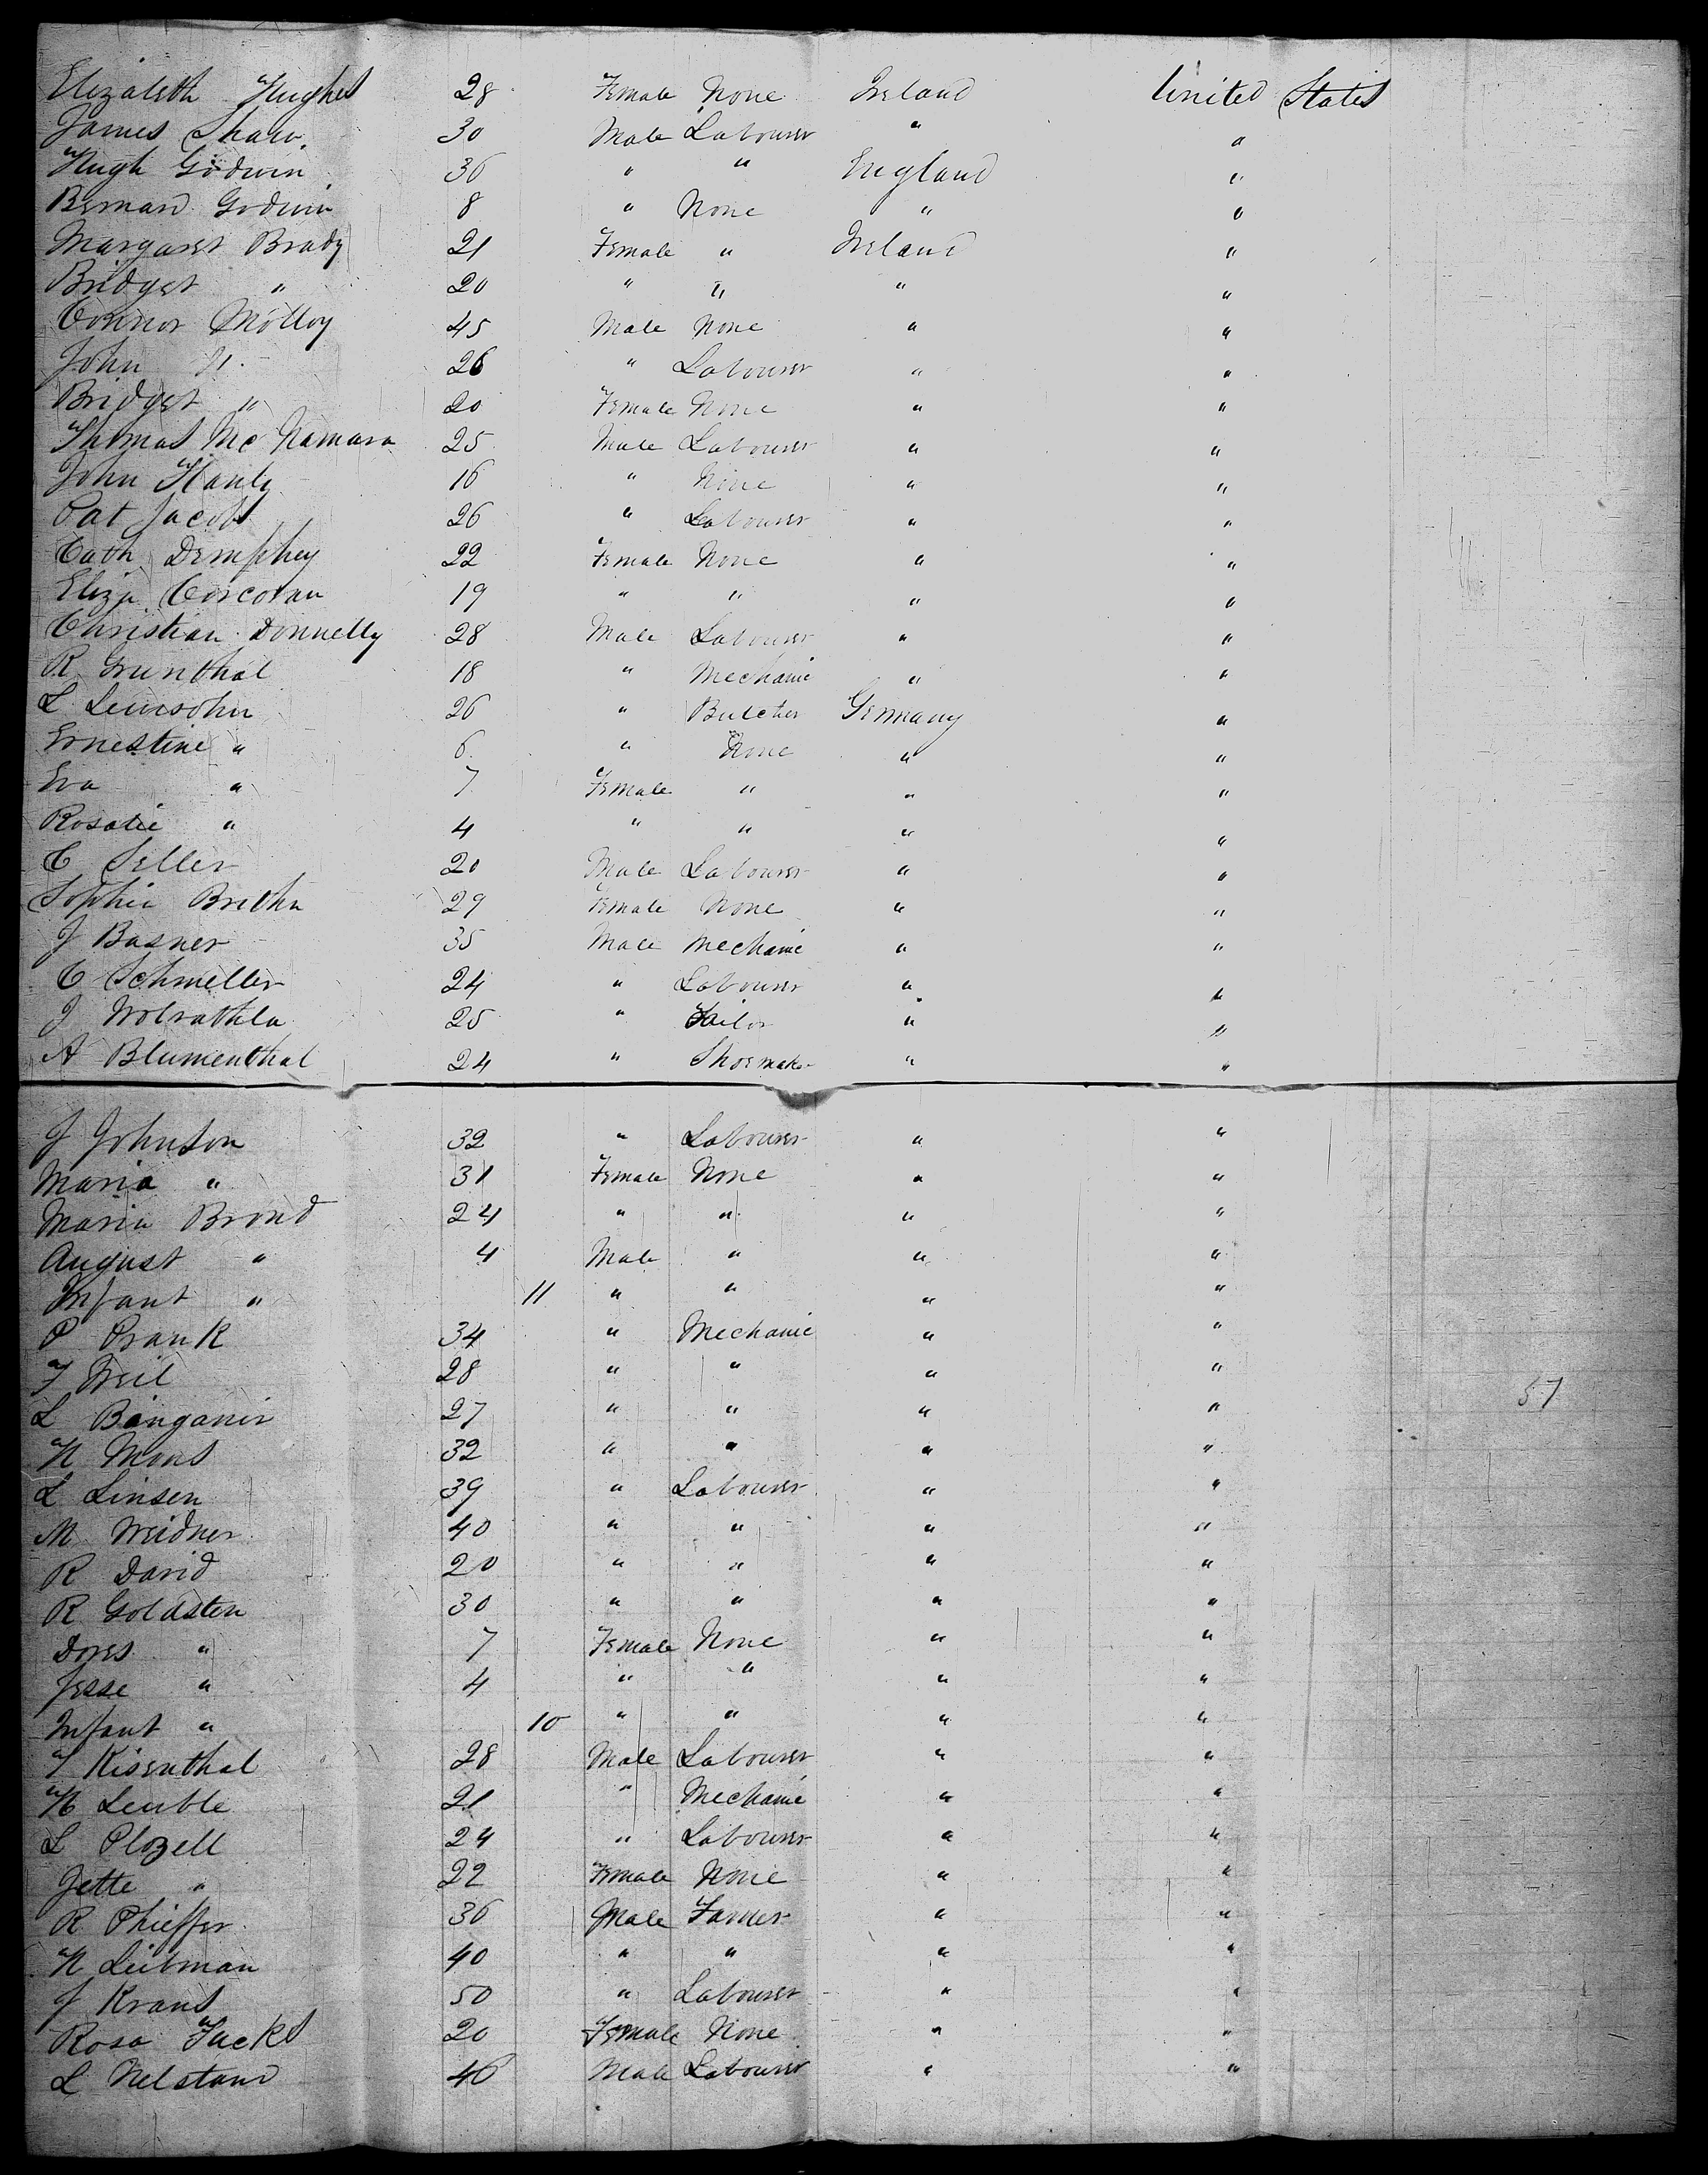 Elizabeth Hughes 28 Female None Ireland United States
James Shaw. 30 Male Labourer " "
Hugh Godwin 36 " " England "
Bernard Godwin 8 " None " "
Margaret Brady 21 Female " Ireland "
Bridget " 20 " " " "
Connor Molloy 45 Male None " "
John " 26 " Labourer " "
Bridget " 20 Female None " "
Thomas McNamara 25 Male Labourer " "
John Hanly 16 " None " "
Pat Jacobs 26 " Labourer " "
Cath Demphey 22 Female None " "
Eliza Corcoran 19 " " " "
Christian Donnelly 28 Male Labourer " "
R Grunthal 18 " Mechanic " "
L Leuisohn 26 " Butcher Germany "
Ernestine " 6 " None " "
Eva " 7 Female " " "
Rosalie " 4 " " " "
C Seller 20 Male Labourer " "
Sophie 29 Female None " "
J Basner 35 Male Mechanic " "
C Schmeller 24 " Labourer " "
J 25 " Tailor " "
A Blumenthal 24 " Shoemaker " "
J Johnson 32 " Labourer " "
Maria " 31 Female None " "
Maria Brond 24 " " " "
August " 4 Male " " "
Infant " 11 " " " "
P Prank 34 " Mechanic " "
F Weil 28 " " " "
L 27 " " " "
H Mons 32 " " " "
L Linsen 39 " Labourer " "
M Weidner 40 " " " "
R David 20 " " " "
R Goldsten 30 " " " "
Dores " 7 Female None " "
Jesse " 4 " " " "
Infant " 10 " " " "
Risenthal 28 Male Labourer " "
H Leuble 21 " Mechanic " "
L Plozell 24 " Labourer " "
Jette " 22 Female None " "
R Phieffer 36 Male Farmer " "
H Leibman 40 " " " "
J Krans 50 " Labourer " "
Rosa Fucks 20 Female None " "
L Nelstand 46 Male Labourer " "
57